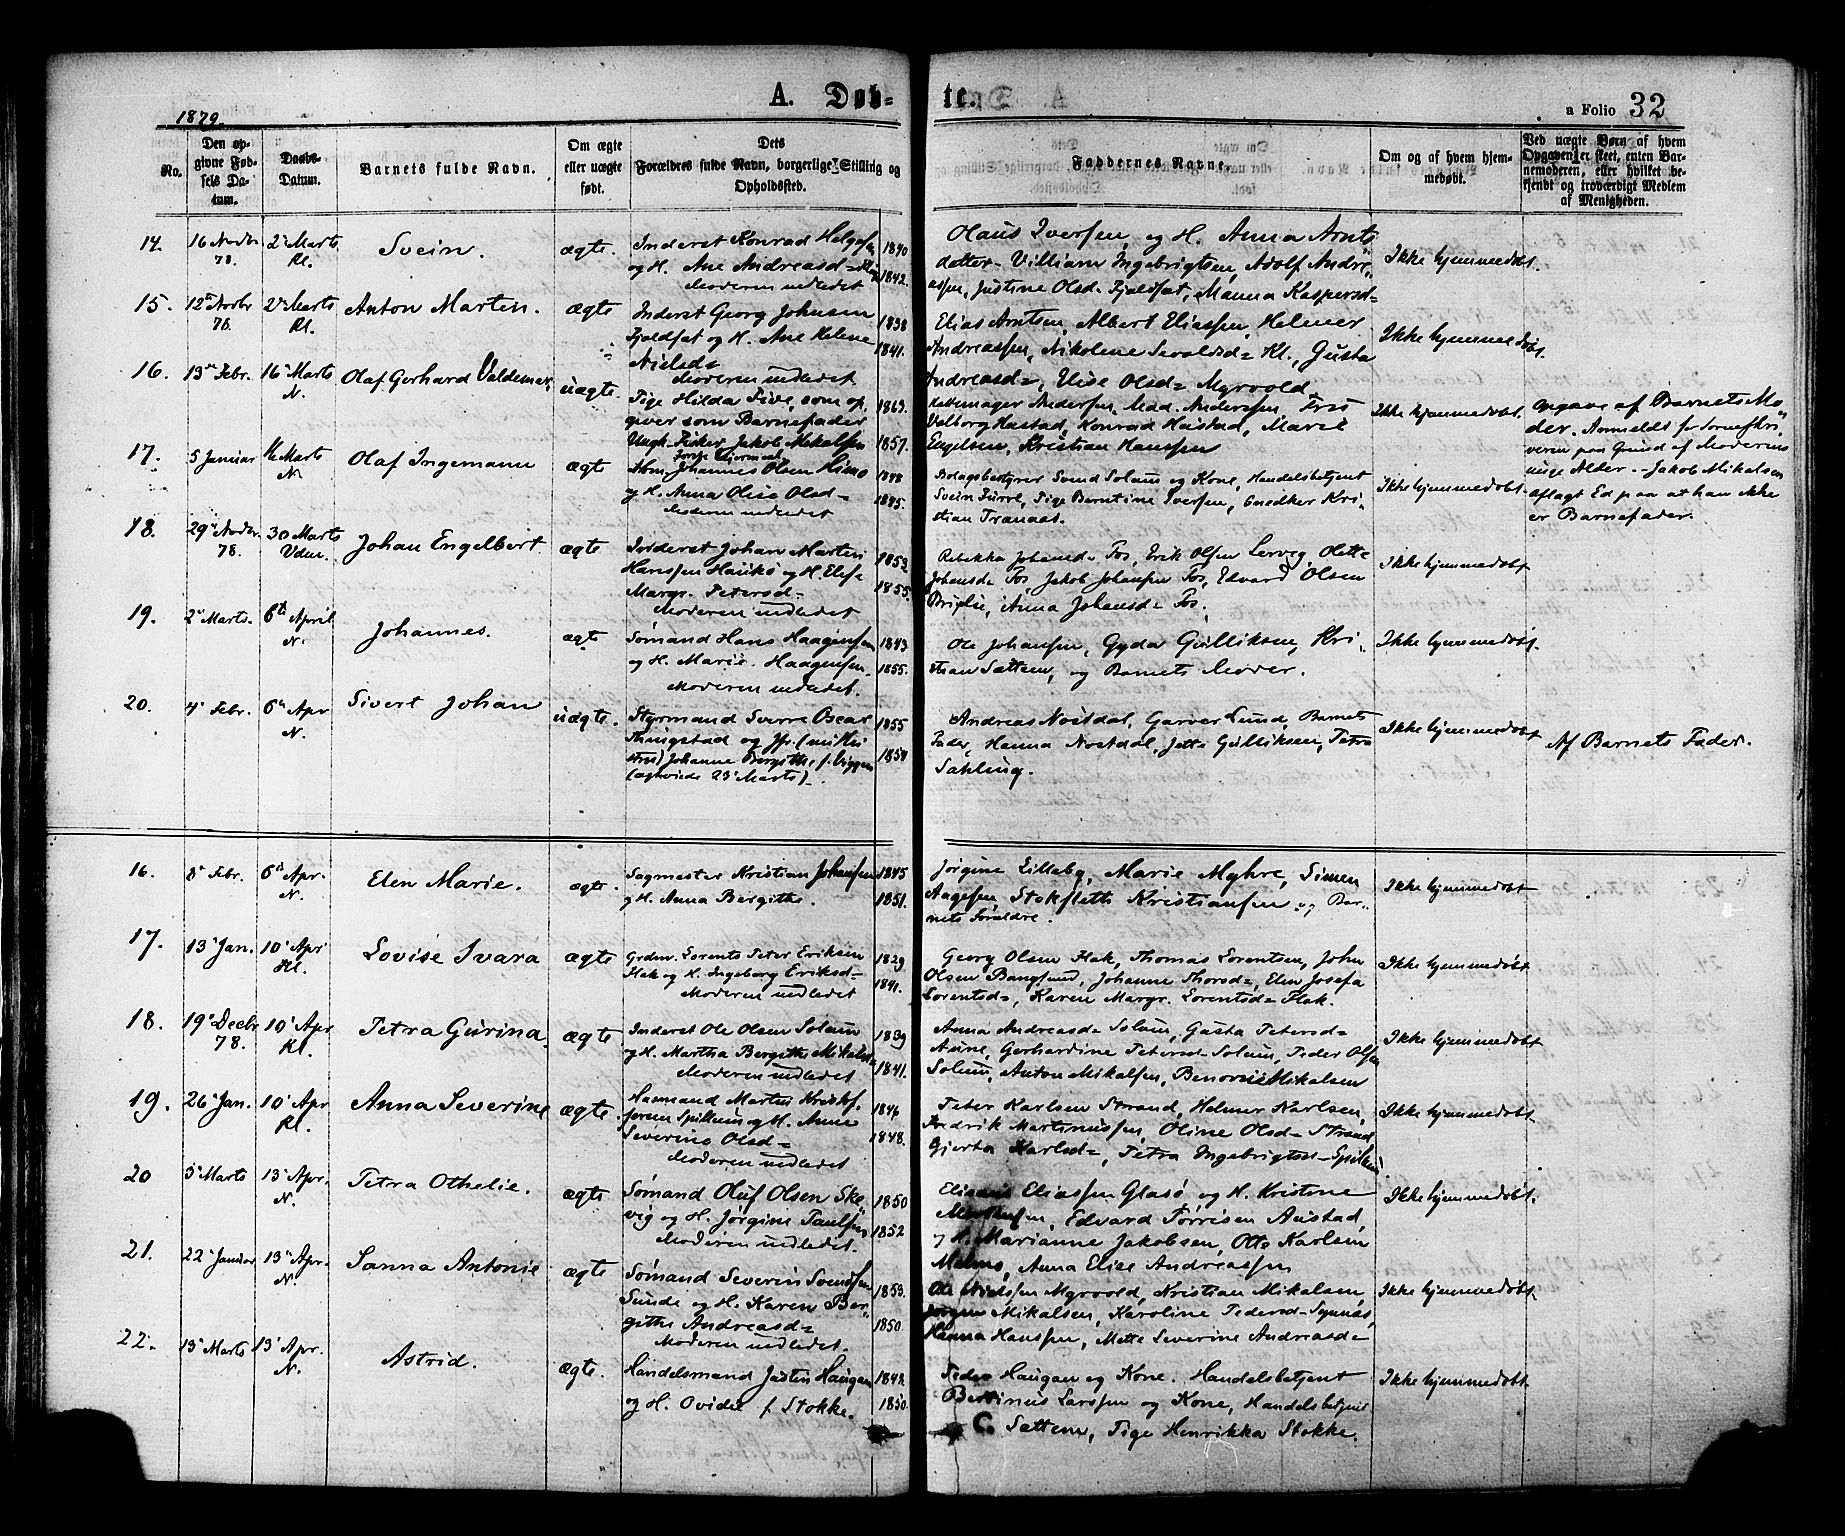 1879.
A. Døb-
te.
a Folio 32
No.
Den op-
givne Fød-
sels Da-
tum.
Daabs-
Datum.
Barnets fulde Navn.
Om ægte
eller uægte
født.
Dets
Forældres fulde Navn, borgerlige Stilling og
Opholdssted.
Faddernes Navne.
Om og af hvem hjem-
medøbt.
Ved uægte Børn af hvem
Opgaven er skeet, enten Bar-
nemoderen, eller hvilket be-
kjendt og troværdigt Medlem
af Menigheden.
14. 16 Novbr 78. 2 Marts Kl. Svein. ægte.
Inderst Konrad Helgesen 1840
og H. Ane Andreasd= 1842.
Moderen indledet
Olaus Iversen og H. Anna Arnts
datter. Villiam Ingebrigtsen, Adolf Andre
assen, Justine Olsd= Fjeldsæt, Manna Kaspersd=
Ikke hjemmedøbt.
15. 12 Novbr 78. 2 Marts Kl. Anton Martin. ægte
Inderst Georg Johnsen 1838
Fjeldsæt og H. Ane Helene 1841.
Nielsd=
Moderen indledet
Elias Arntsen, Albert Eliassen, Helmer
Andreassen, Nikoline Sevaldsd= Kl., Gusta
Andreasd=, Elise Olsd= Myrvold.
Ikke hjemmedøbt.
16. 13 Febr. 16 Marts N. Olaf Gerhard Valdemar. uægte.
Pige Hilda Five, som op 1863.
giver som Barnefader
Ungk. Fisker Jakob Mikalsen 1857.
Anderssen, Mad. Anderssen, Frk
Valborg Hastad, Konrad Hastad, Marie
Engelsen, Kristian Hanssen
Ikke hjemmedøbt.
Opgave af Barnets Mo
der. Anmeldt for Sorenskri
veren paa Grund af Moderens
unge Alder. - Jakob Mikalsen
aflagt Ed paa at han ikke
er Barnefader.
17. 5 Januar 16 Marts N. Olaf Ingemann ægte
Johannes Olsen Himo 1848
og H. Anna Olise Olsd= 1845.
Moderen indledet
Svend Solum og Kone, Handelsbetjent
Svein Fürre, Pige Berntine Iversen, Snedker Kri-
stian Tranaas.
Ikke hjemmedøbt.
18. 29 Novbr 78. 30 Marts Johan Engelbert ægte
Inderst Johan Martin 1852
Hanssen Haukø og H. Elise 1855.
Margr. Petersd=
Moderen indledet
Rebekka Johansd= Fos, Erik Olsen Lervig, Olette
Johansd= Fos, Jakob Johansen Fos, Edvard Olsen
Anna Johansd= Fos.
Ikke hjemmedøbt
19. 2 Marts. 6te April N. Johannes. ægte
Sømand Hans Haagensen 1843
og H. Marie Haagensen. 1855.
Moderen indledet.
Ole Johansen, Gyda Gulliksen, Kri
stian Sættem, og Barnets Moder.
Ikke hjemmedøbt.
20. 4 Febr. 6 Apr N. Sivert Johan uægte.
Styrmand Sverre Oscar 1855
Thingstad og
Johanne Bergitte f. Viggen 1854
(ægteviede 23 Marts).
Andreas Nostdal, Garver Lund, Barnets
Fader, Hanna Nostdal, Jette Gulliksen, Petra
Sahling.
Ikke hjemmedøbt
Af Barnets Fader.
16. 8 Febr. 6 Apr. N. Elen Marie. ægte.
Sagmester Kristian Johansen 1845
og H. Anna Bergitte. 1851.
Jørgine Lilleby, Marie Myhre, Simen
Aagesen, Stokfleth Kristiansen og Bar-
nets Forældre.
Ikke hjemmedøbt
17. 13 Jan. 10 Apr Kl. Lovise Svara ægte
Grdm. Lorents Peter Eriksen 1829
Hak og H. Ingeborg Eriksd= 1841.
Moderen indledet
Georg Olsen Hak, Thomas Lorentsen, John
Olsen Bangsund, Johanne Thorsd=, Elen Josefa
Lorentsd=, Karen Margr. Lorentsd= Hak.
Ikke hjemmedøbt
18. 19 Decbr 78. 10 Apr Kl. Petra Gurina. ægte
Inderst Ole Olsen Solum 1839
og H. Martha Bergitte Mikalsd= 1841.
Moderen indledet
Anna Andreasd= Solum, Gusta Petersd=
Aune, Gerhardine Petersd= Solum, Peder Olsen
Solum, Anton Mikalsen, Benovie Mikalsen
Ikke hjemmedøbt
19. 26 Jan. 10 Apr Kl. Anna Severine ægte.
Husmand Martin Kristof 1846
fersen Spillum og H. Anne 1848.
Severine Olsd=
Moderen indledet
Peter Karlsen Strand, Helmer Karlsen,
Fredrik Martinussen, Oline Olsd= Strand
Gjerta Karlsd=, Petra Ingebrigtsd= Spillum
Ikke hjemmedøbt
20 5 Marts 13 Apr. N. Petra Othelie. ægte
Sømand Oluf Olsen Ske 1850
vig og H. Jørgine Paulsen 1852
Moderen indledet.
Eliassen Glasø og H. Kristine
Edvard Tørrisen Austad,
og H. Marianne Jakobsen, Otto Karlsen
Malmo, Anna Elise Andreassen
Ikke hjemmedøbt.
21. 22 Januar 13 Apr. N. Sanna Antonie ægte
Sømand Severin Svendsen 1853.
Sunde og H. Karen Ber 1850
gitte Andreasd=
Moderen indledet.
Ole Nielsen Myrvold, Kristian Mikalsen,
Jørgen Mikalsen, Karoline Pedersd=
Hanna Hanssen, Mette Severine Andreasd=
Ikke hjemmedøbt.
22. 13 Marts 13 Apr. N. Astrid. ægte.
Handelsmand Justin Haugan 1848.
og H. Ovidie f. Stokke. 1850.
Peder Haugan og Kone, Handelsbetjent
Bertinus Larssen og Kone, Handelsbetjent
C. Sættem, Pige Henrikka Stokke.
Ikke hjemmedøbt